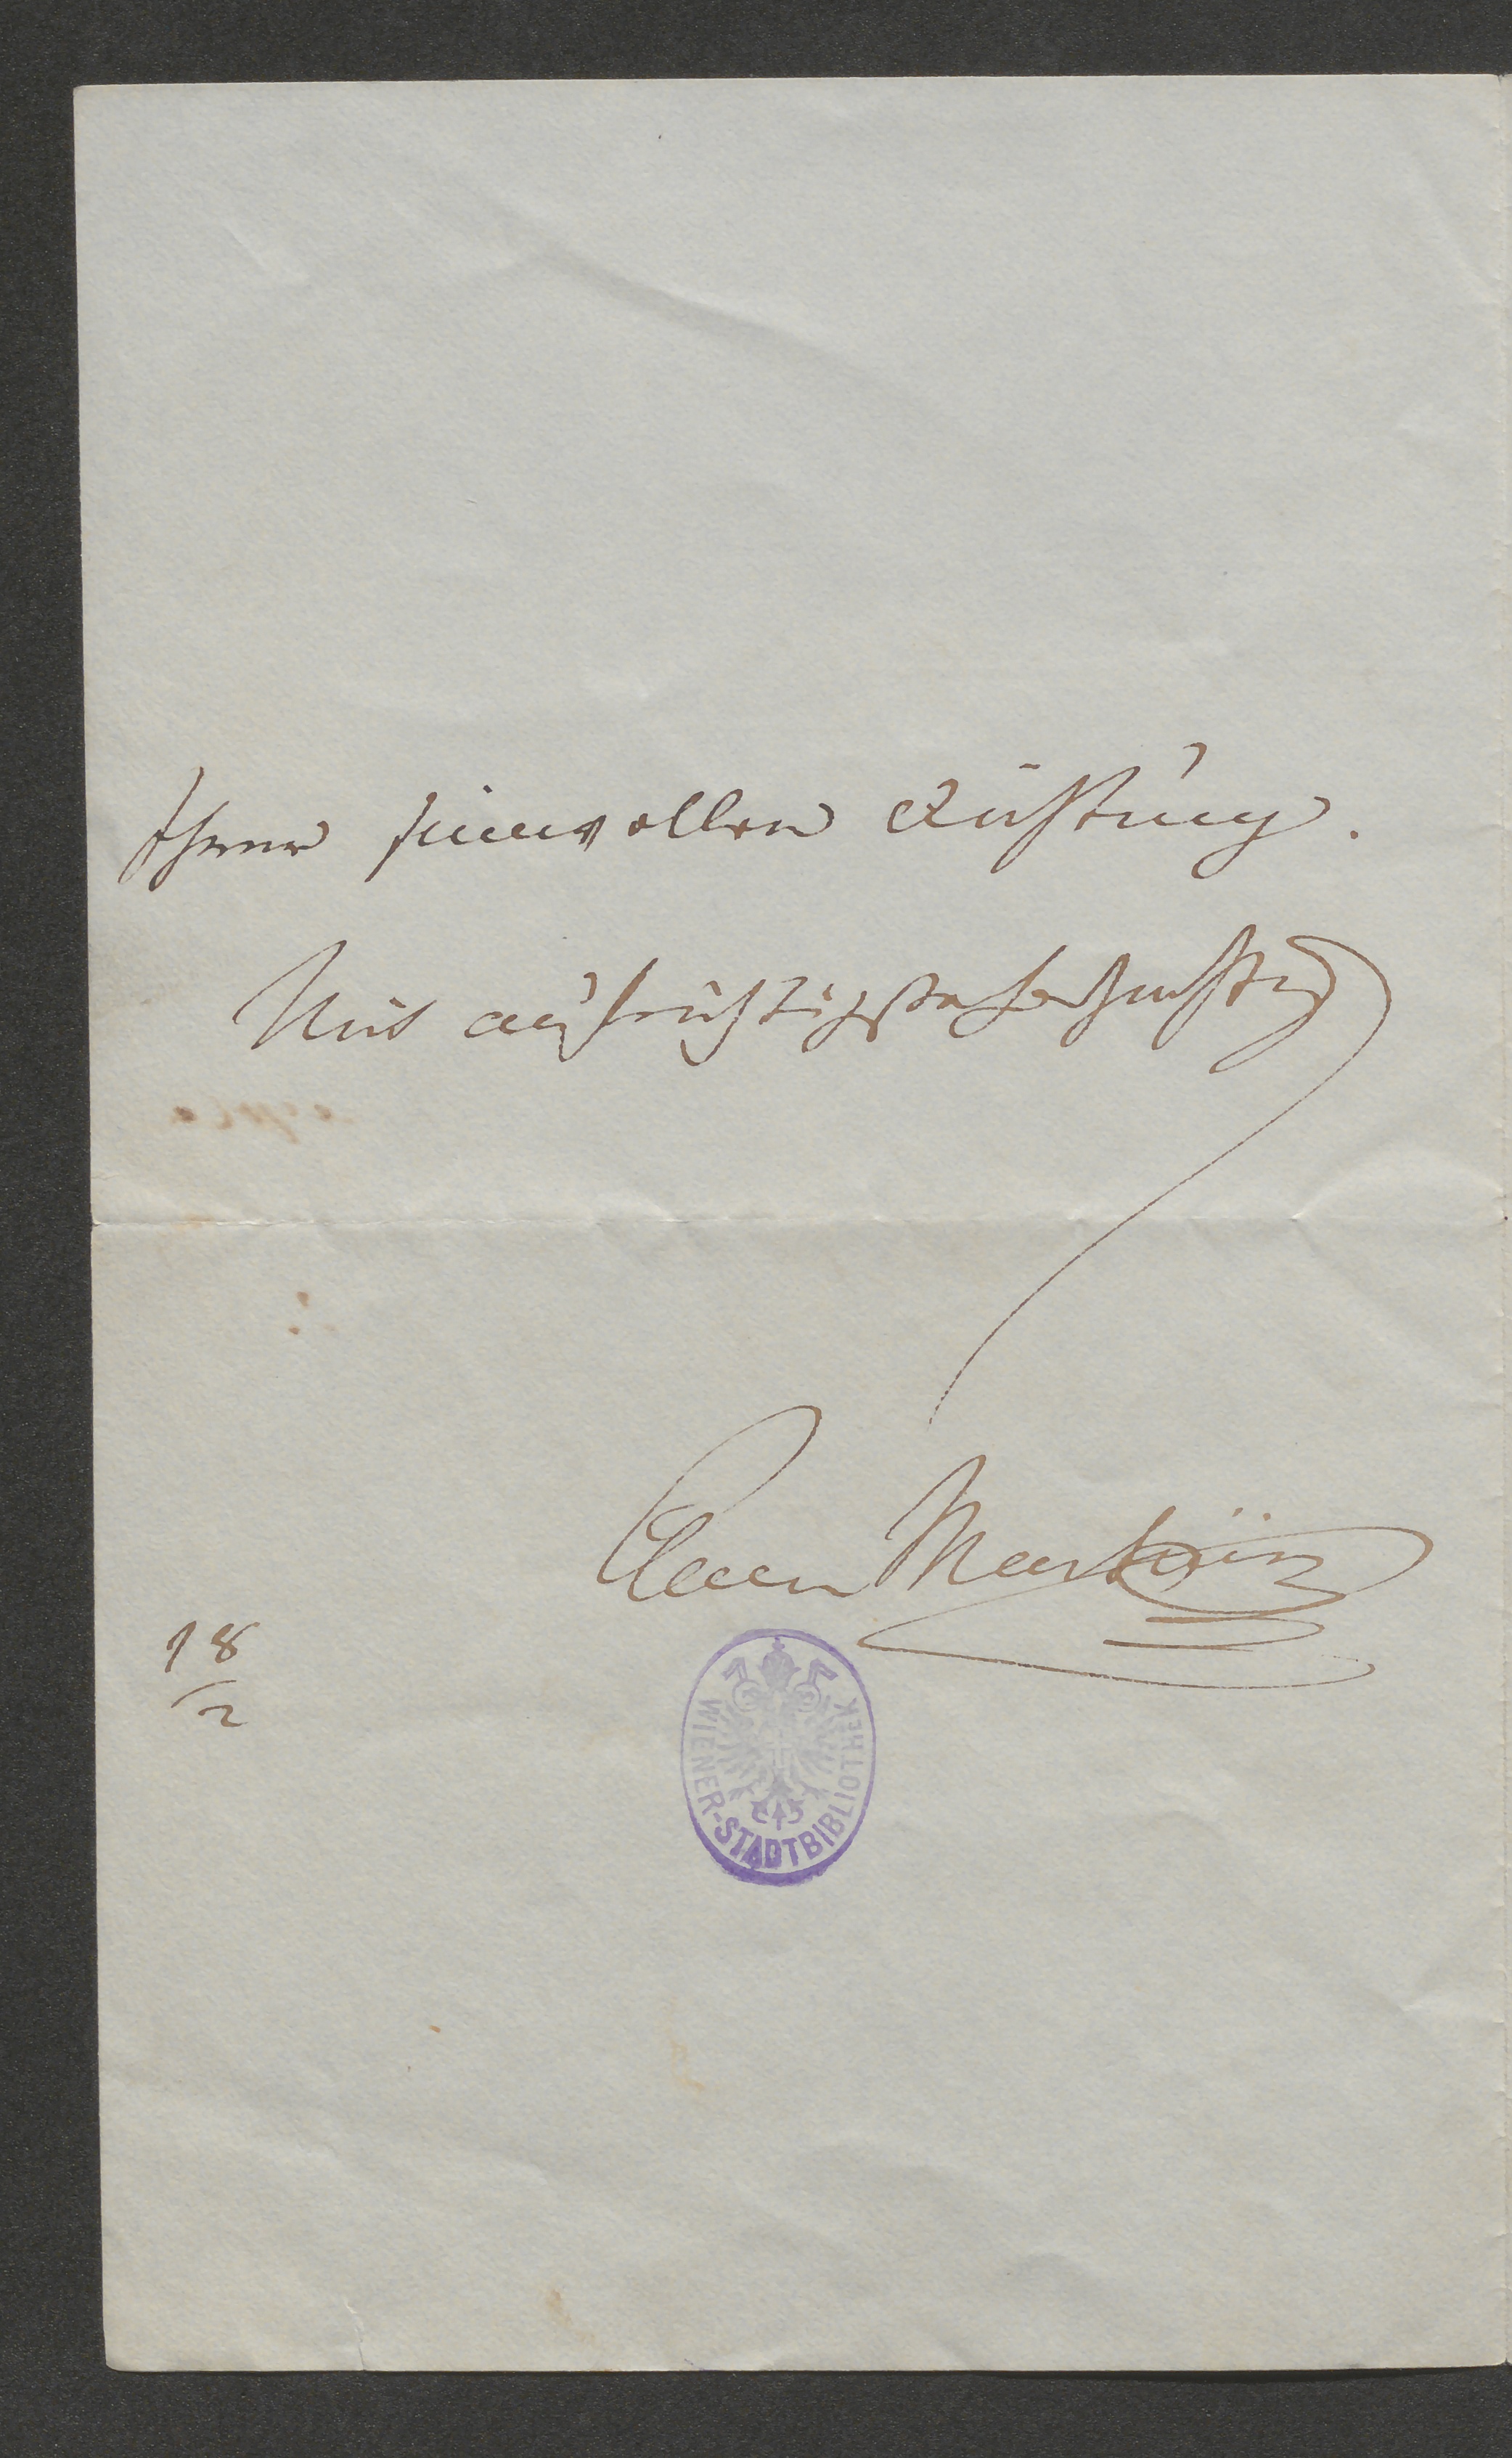 Ihrer sinnvollen Dichtung.
Mit aufrichtigster Hochachtung
Clara Martin
18
2
WIENER-STADTBIBLIOTHEK